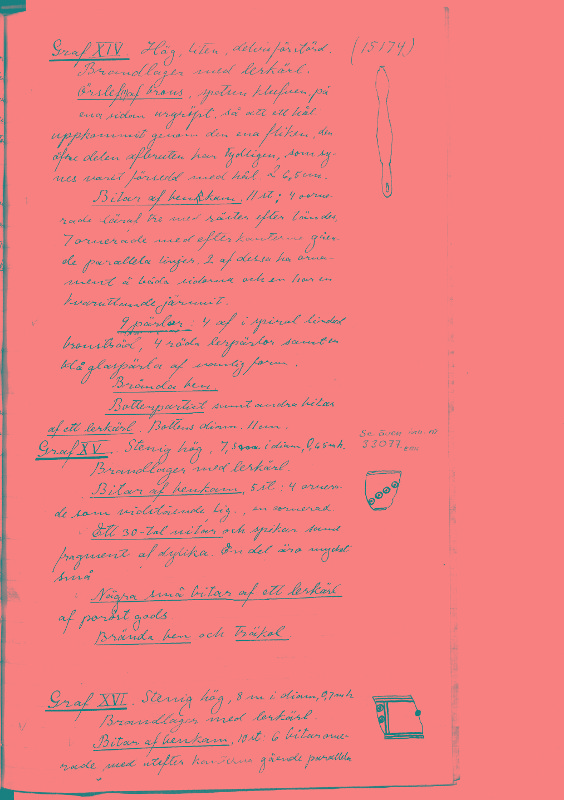 Graf XIV. Hög, liten, delvis förstörd. (15179)
Brandlager med lerkärl.
Örslef af brons, spetsen klufven, på
ena sidan urgröpt, så att ett hål
uppkommit genom den ena fliken, den
öfre delen afbruten har tydligen, som sy-
nes varit försedd med hål. L 6,5 cm.
Bitar af benkam, 11 st; 4 orne-
rade med efter
7 ornerade med efter kanterna gåen-
de parallela linjer. 2 af dessa ha orna-
ment å båda sidorna och en har en
kvarsittande järnnit.
9 pärlor, 4 af i spiral lindad
bronstråd, 4 röda lerpärlor samt en
blå glaspärla af vanlig form.
Brända ben
Bottenpartiet samt andra bitar
af ett lerkärl. Bottens diam. 11 cm.
33077
Graf XV. Stenig hög, 7,5 m i diam, 0,45 m h.
Brandlager med lerkärl.
Bitar af benkam, 5 st; 4 ornera-
de som vidstående fig., en ornerad
Ett 30-tal nitar och spikar samt
fragment af dylika. En del äro mycket
små
Några små bitar af ett lerkärl
af poröst gods
Brända ben och träkol
Graf XVI. Stenig hög, 8 m i diam, 0,7 m h
Brandlager med lerkärl.
Bitar af benkam, 10 st. 6 bitar orne-
rade med utefter kanterna gående parallela